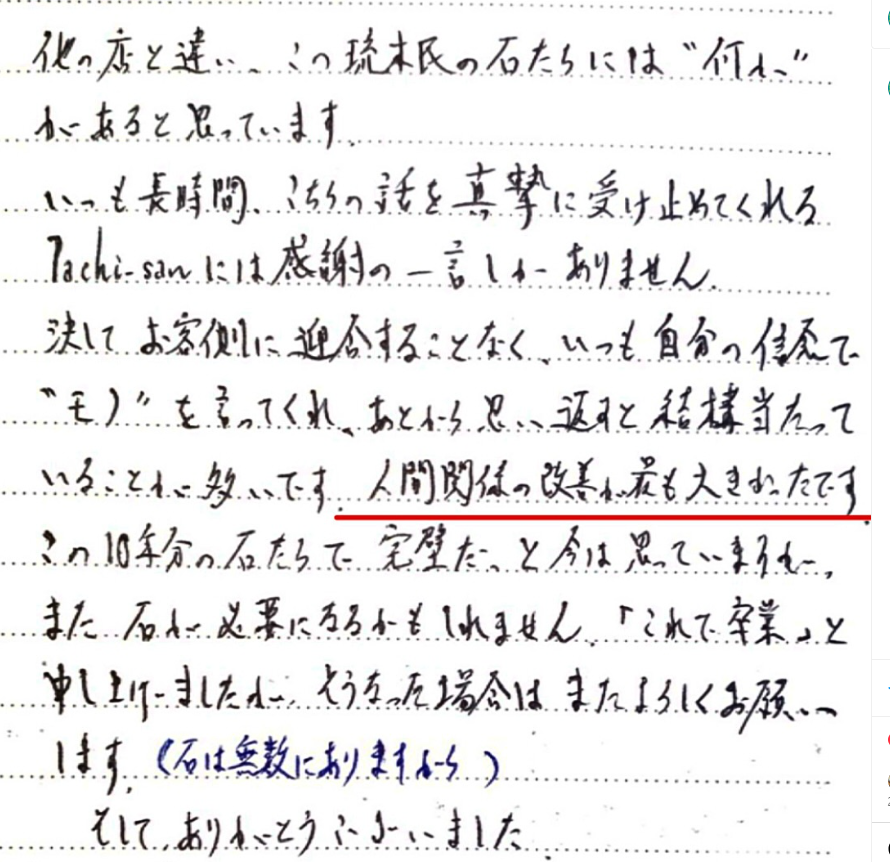 他の店と違い、この琉木民の石たちには“何か”
があると思っています。
いつも長時間、こちらの話を真摯に受け止めてくれる
Tachi-sanには感謝の一言しかありません。
決してお客側に迎合することなく、いつも自分の信念で
“モノ”を言ってくれ、あとから思い返すと結構当たって
いることが多いです。人間関係の改善が最も大きかったです。
この10年分の石たちで完璧だ、と今は思っていますが、
また石が必要になるかもしれません。「これで卒業」と
申し上げましたが、そうなった場合はまたよろしくお願い
します。(石は無数にありますから)
そして、ありがとうございました。